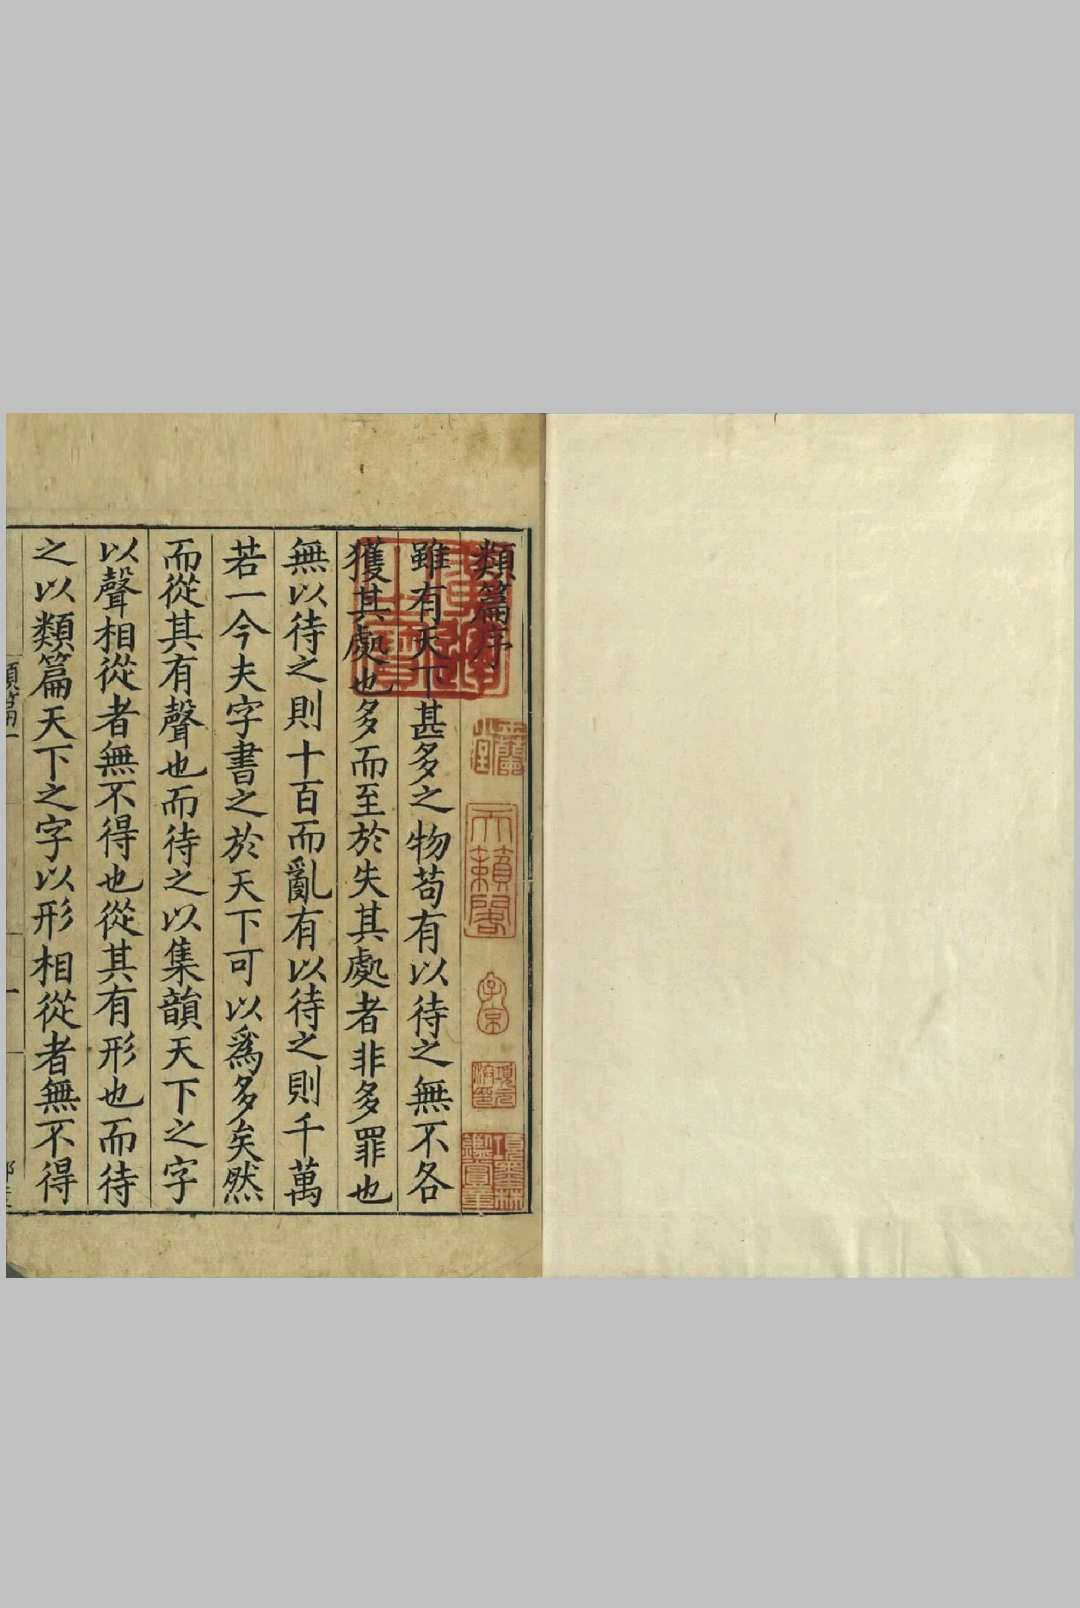 類篇序
雖有天下甚多之物苟有以待之無不各
獲其處也多而至於失其處者非多罪也
無以待之則十百而亂有以待之則千萬
若一今夫字書之於天下可以爲多矣然
而從其有聲也而待之以集韻天下之字
以聲相從者無不得也從其有形也而待
之以類篇天下之字以形相從者無不得
類篇一
天籟閣
子京
項元汴印
項墨林鑑賞章